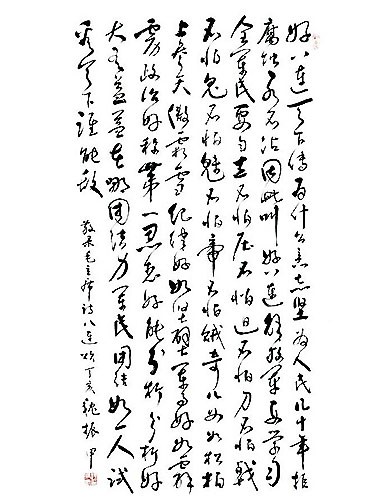 好八连天下传为什么意志坚为人民几十年拒
腐蚀永不沾因此叫好八连解放军要学习
全军民要自立不怕压不怕迫不怕刀不怕戟
不怕鬼不怕魅不怕帝不怕贼奇儿女如松柏
上参天傲霜雪纪律好如坚壁军事好如霹
雳政治好称第一思想好能分析分析好
大有益益在哪团结力军民团结如一人试
看天下谁能敌
敬录毛主席诗八连颂丁亥魏振甲